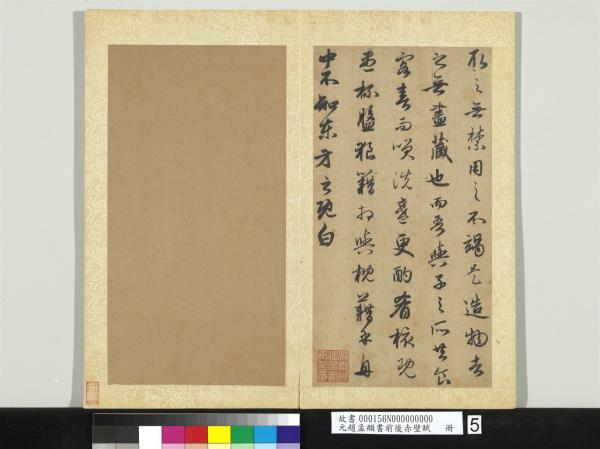 取之無禁用之不竭是造物者
之無盡藏也而吾與子之所共食
客喜而笑洗盞更酌肴核既
盡杯盤狼籍相與枕藉乎舟
中不知東方之既白
故書 000156N000000000
元趙孟頫書前後赤壁賦 冊
5